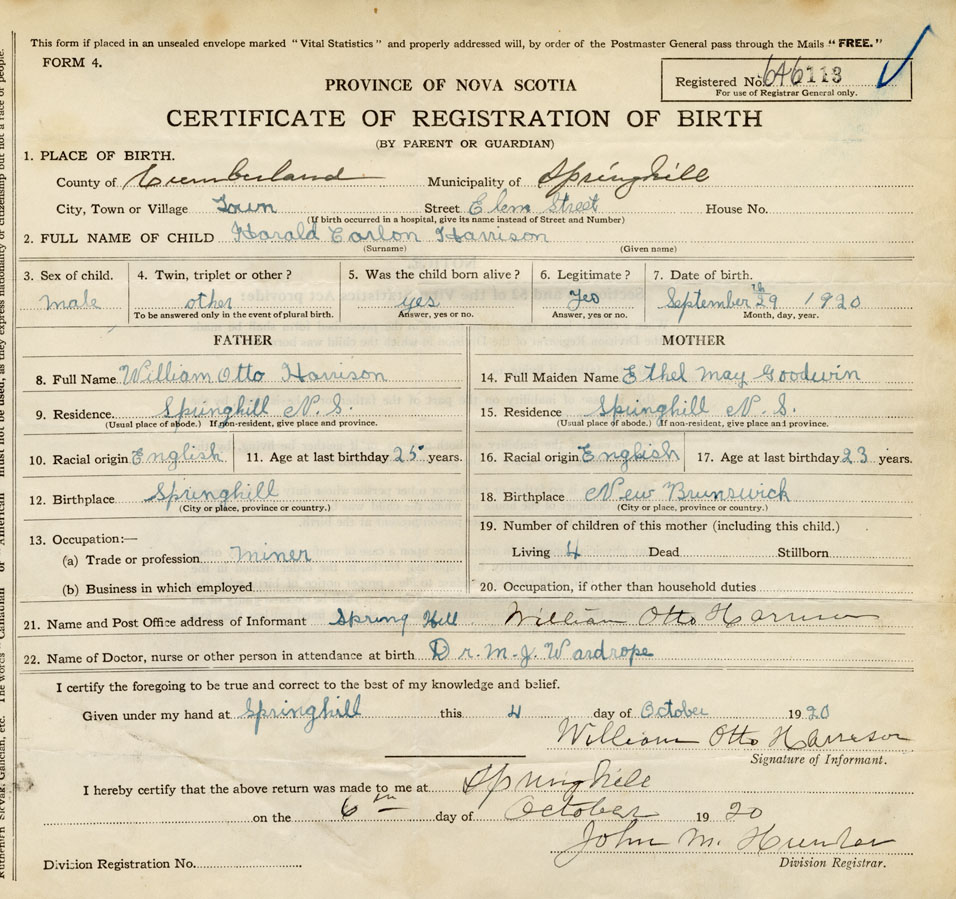 This form if placed in an unsealed envelope marked "Vital Statistics" and properly addressed will, by order of the Postmaster General pass through the Mails "FREE."
FORM 4.
Registered No. 646113
For use of Registrar General only.
PROVINCE OF NOVA SCOTIA
CERTIFICATE OF REGISTRATION OF BIRTH
(BY PARENT OR GUARDIAN)
1. PLACE OF BIRTH.
County of Cumberland Municipality of Springhill
City, Town or Village Town Street Elem Street House No.
(If birth occurred in a hospital, give its name instead of Street and Number)
2. FULL NAME OF CHILD Harald Carlon Harrison
(Surname) (Given name)
3. Sex of child. 4. Twin, triplet or other? 5. Was the child born alive? 6. Legitimate? 7. Date of birth.
male other yes Yes September 29th 1920
To be answered only in the event of plural birth. Answer, yes or no. Answer, yes or no. Month, day, year.
FATHER MOTHER
8. Full Name William Otto Harrison 14. Full Maiden Name Ethel May Goodwin
9. Residence. Springhill N. S. 15. Residence Springhill N. S.
(Usual place of abode.) If non-resident, give place and province. (Usual place of abode.) If non-resident, give place and province.
10. Racial origin English 11. Age at last birthday 25 years. 16. Racial origin English 17. Age at last birthday 23 years.
12. Birthplace Springhill 18. Birthplace New Brunswick
(City or place, province or country.) (City or place, province or country.)
13. Occupation:— 19. Number of children of this mother (including this child.)
(a) Trade or profession miner Living 4 Dead Stillborn
(b) Business in which employed 20. Occupation, if other than household duties
21. Name and Post Office address of Informant Spring Hill William Otto Harrison
22. Name of Doctor, nurse or other person in attendance at birth Dr. M. J. Wardrope
I certify the foregoing to be true and correct to the best of my knowledge and belief.
Given under my hand at Springhill this 4 day of October 1920
William Otto Harrison
Signature of Informant.
I hereby certify that the above return was made to me at Springhill
on the 6th day of October 1920
John M. Hunter
Division Registrar.
Division Registration No.